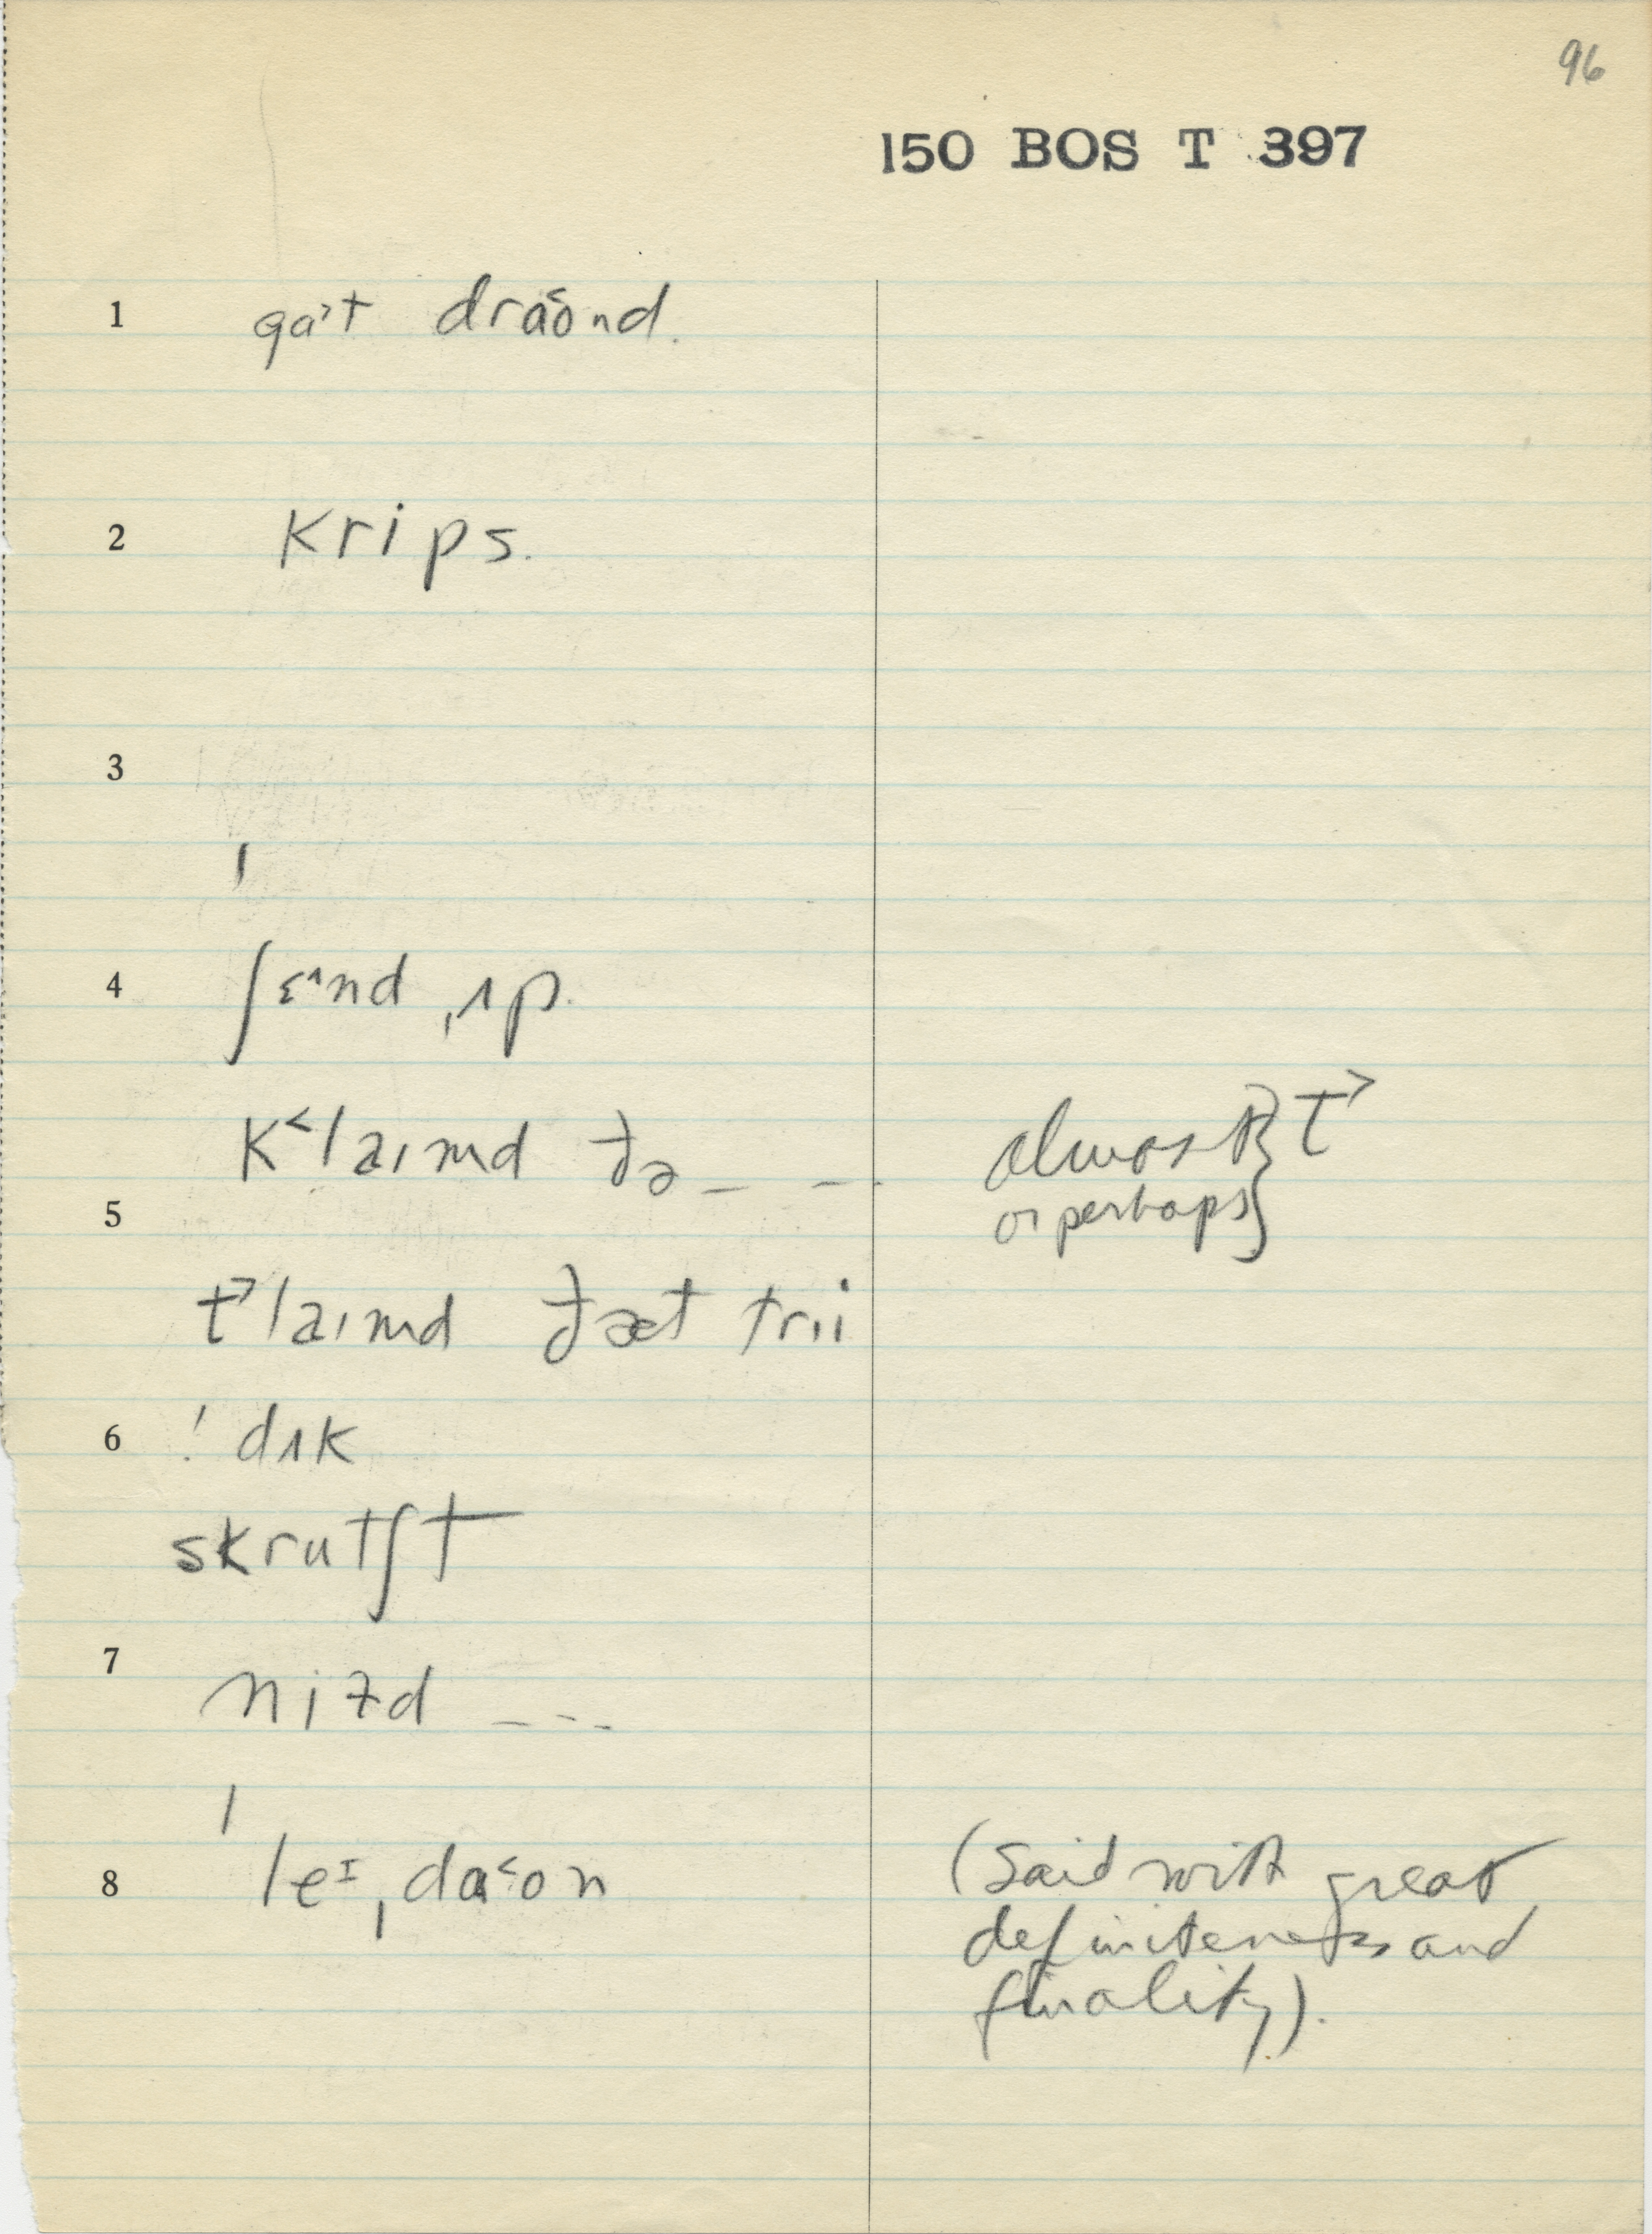 96
150 BOS T 397
1 ga˃t dra˂ʊnd.
2 krips.
3
4 ˈʃɛ^nd ˌʌp.
k˂laɪmd ðə_ _ _
almost }
or perhaps } t˃
5
t˃laɪmd ðæt trii
6 ! dʌk
skrutʃt
7
niɫd _ _ _
8 ˈleɪˌda˂ʊn
(Said with great
definiteness and
finality).